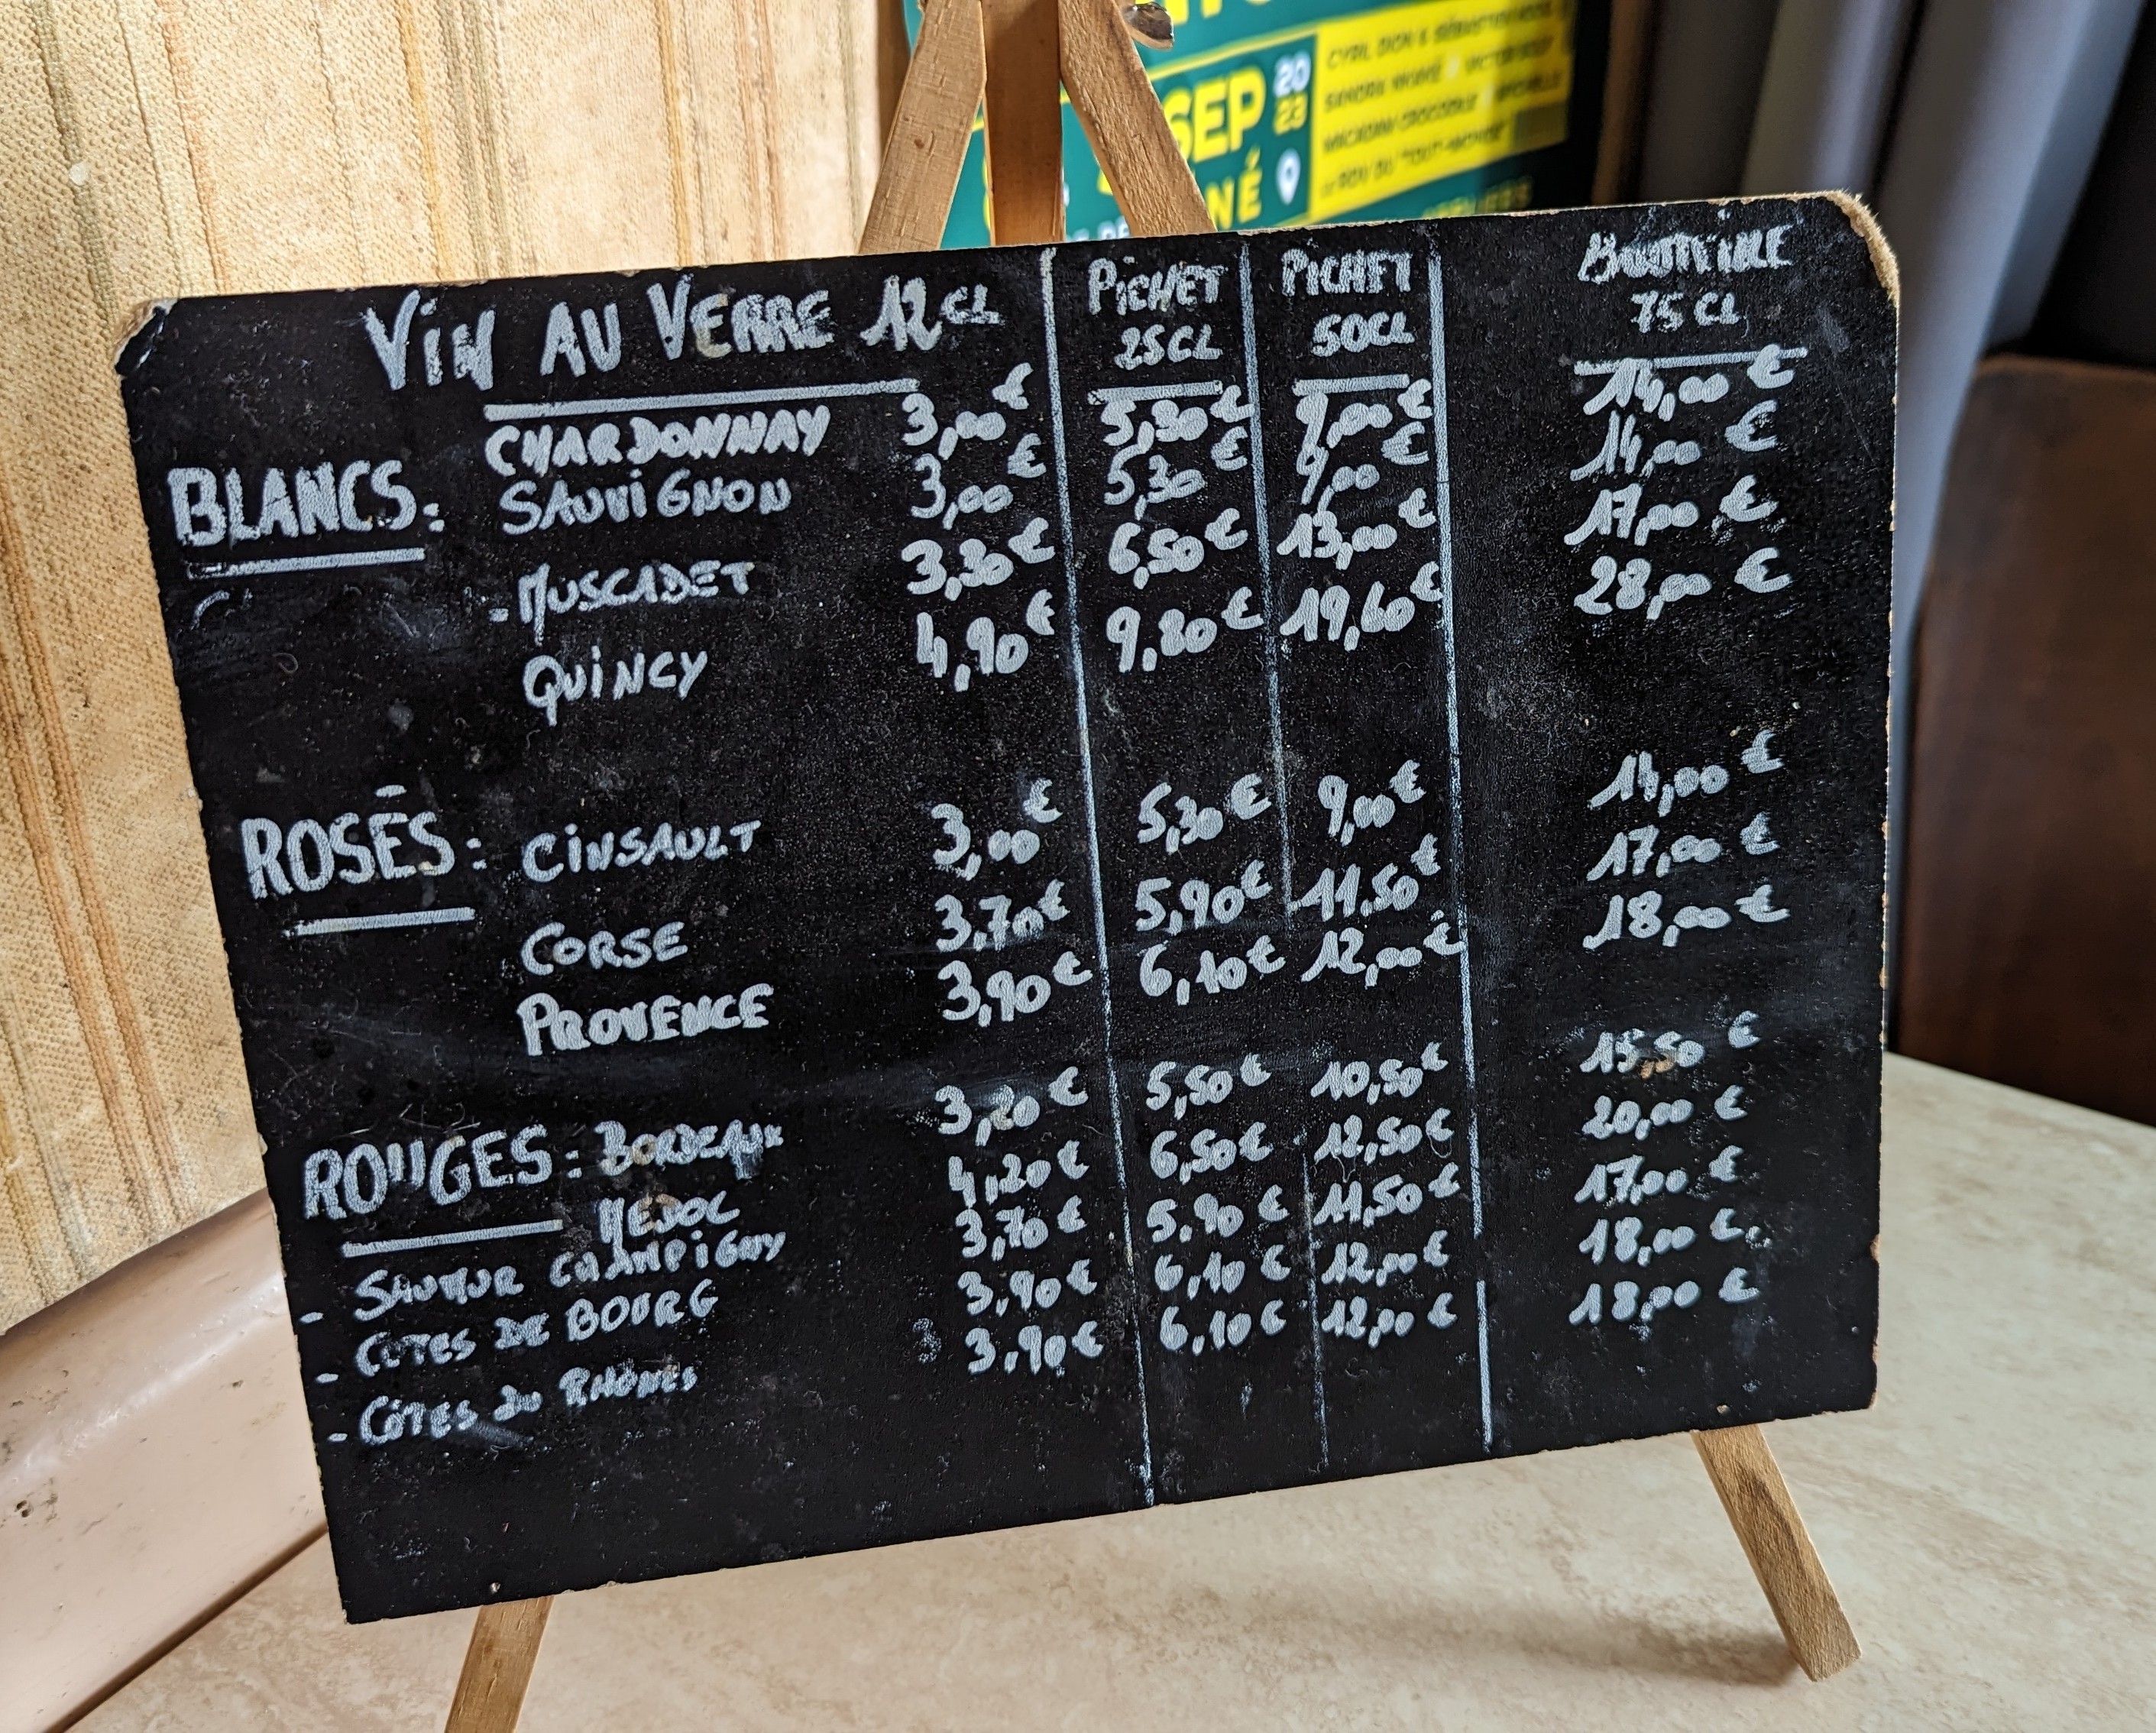 SEP 20
23
NÉ
CYRIL DION & SÉBASTIEN
VIN AU VERRE 12 CL
PICHET
25 CL
PICHET
50 CL
BOUTEILLE
75 CL
BLANCS:
CHARDONNAY 3,00 € 5,30 € 9,00 € 14,00 €
SAUVIGNON 3,00 € 5,30 € 9,00 € 14,00 €
- MUSCADET 3,30 € 6,50 € 13,00 € 17,00 €
QUINCY 4,90 € 9,80 € 19,60 € 28,00 €
ROSÉS: CINSAULT 3,00 € 5,30 € 9,00 € 14,00 €
CORSE 3,70 € 5,90 € 11,50 € 17,00 €
PROVENCE 3,90 € 6,10 € 12,00 € 18,00 €
ROUGES: BORDEAUX 3,20 € 5,50 € 10,50 € 15,50 €
MEDOC 4,20 € 6,50 € 12,50 € 20,00 €
- SAUMUR CHAMPIGNY 3,70 € 5,90 € 11,50 € 17,00 €
- CÔTES DE BOURG 3,90 € 6,10 € 12,00 € 18,00 €
- CÔTES DU RHÔNES 3,90 € 6,10 € 12,00 € 18,00 €